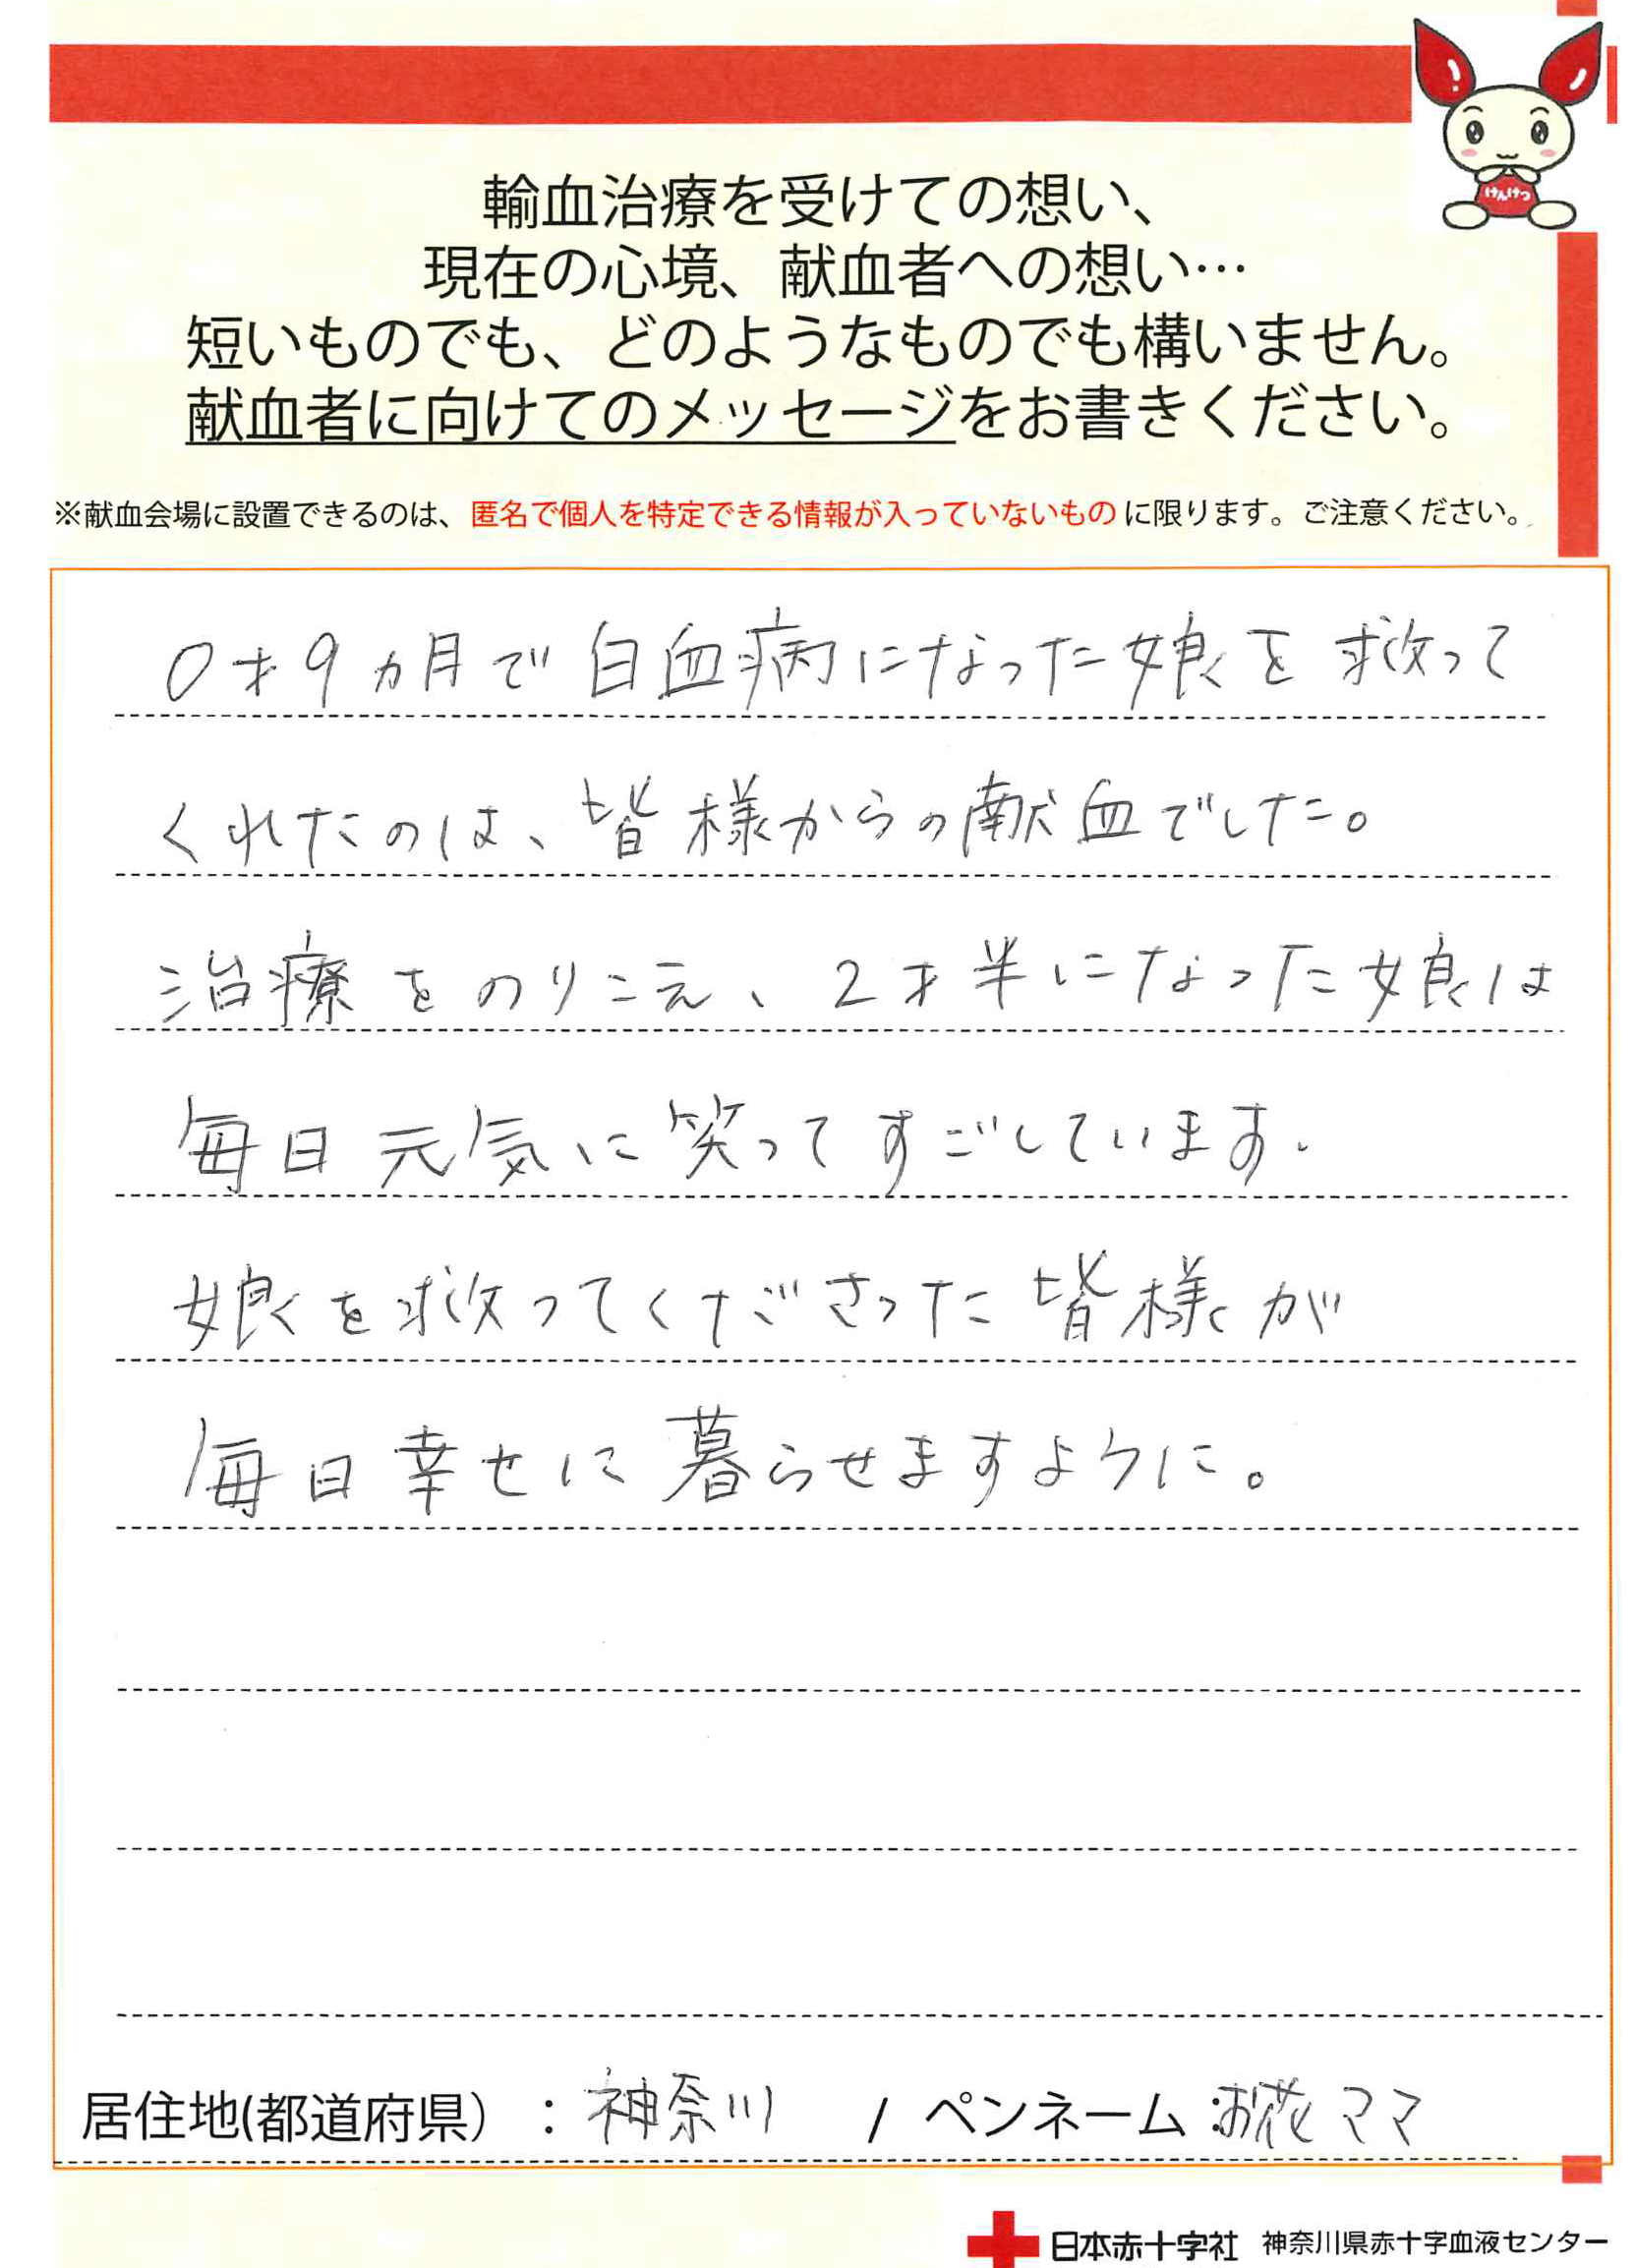 けんけつ
輸血治療を受けての想い、
現在の心境、献血者への想い…
短いものでも、どのようなものでも構いません。
献血者に向けてのメッセージをお書きください。
※献血会場に設置できるのは、匿名で個人を特定できる情報が入っていないものに限ります。ご注意ください。
0才9ヵ月で白血病になった娘を救って
くれたのは、皆様からの献血でした。
治療をのりこえ、2才半になった娘は
毎日元気に笑ってすごしています。
娘を救ってくださった皆様が
毎日幸せに暮らせますように。
居住地(都道府県）：神奈川 / ペンネーム：お花ママ
日本赤十字社 神奈川県赤十字血液センター